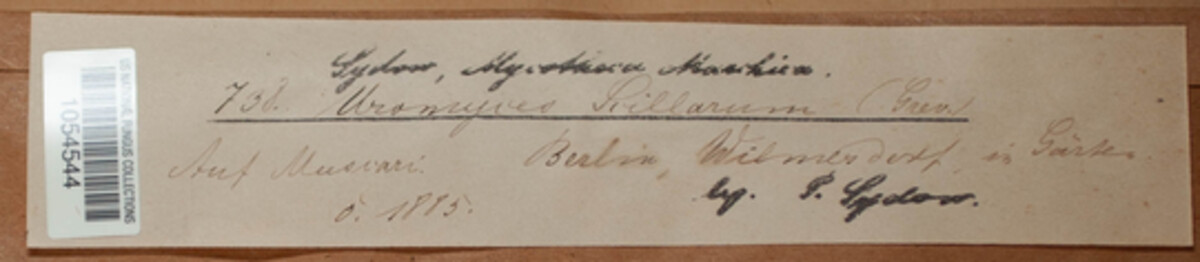 Sydow, Mycotheca Marchica.
738. Uromyces Scillarum (Grev.)
Auf Muscari. Berlin, Wilmersdorf, in Gärten.
5. 1885.
leg. P. Sydow.
US NATIONAL FUNGUS COLLECTIONS
1054544